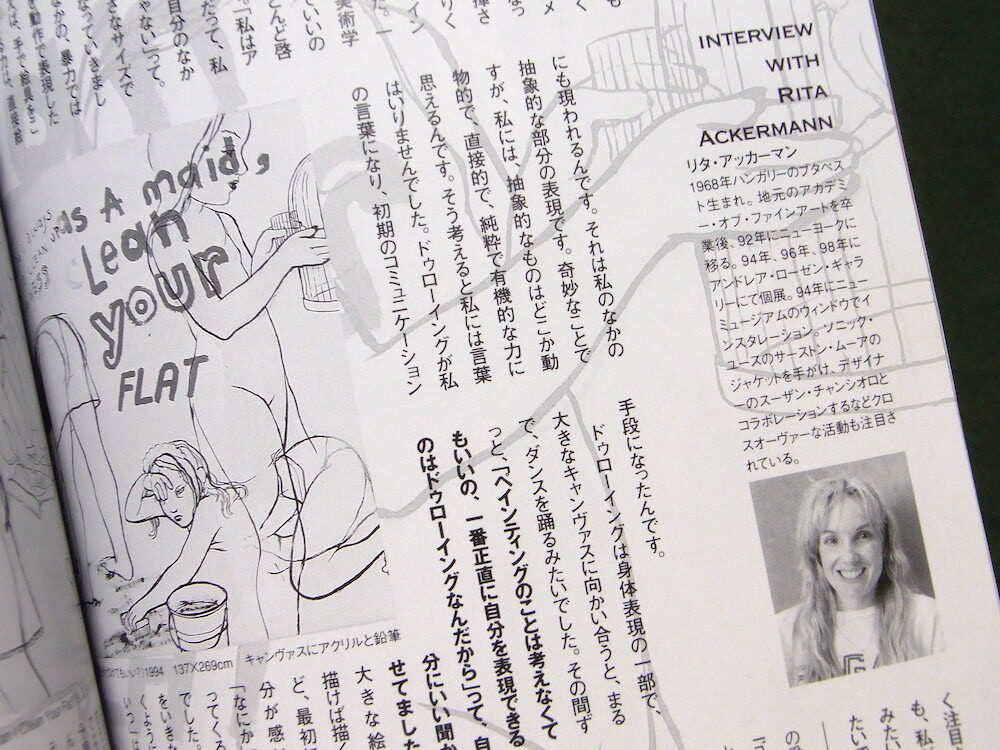 INTERVIEW
WITH
RITA
ACKERMANN
リタ・アッカーマン
1968年ハンガリーのブタペス
ト生まれ。地元のアカデミ
ー・オブ・ファインアートを卒
業後、92年にニューヨークに
移る。94年、96年、98年に
アンドレア・ローゼン・ギャラ
リーにて個展。94年にニュー
ミュージアムのウィンドウでイ
ンスタレーション。ソニック・
ユースのサーストン・ムーアの
ジャケットを手がけ、デザイナ
ーのスーザン・チャンシオロと
コラボレーションするなどクロ
スオーヴァーな活動も注目さ
れている。
にも現われるんです。それは私のなかの
抽象的な部分の表現です。奇妙なことで
すが、私には、抽象的なものはどこか動
物的で、直接的で、純粋で有機的な力に
思えるんです。そう考えると私には言葉
はいりませんでした。ドゥローイングが私
の言葉になり、初期のコミュニケーション
手段になったんです。
ドゥローイングは身体表現の一部で、
大きなキャンヴァスに向かい合うと、まる
で、ダンスを踊るみたいでした。その間ず
っと、「ペインティングのことは考えなくて
もいいの、一番正直に自分を表現できる
のはドゥローイングなんだから」って、自
分にいい聞か
せてました
大きな絵
描けば描く
ど、最初
分が感
「なにか
ってくる
でした。
をいき
くように
美術学
ていいの
とんど啓
。私はア
だって、私
自分のなか
ゃない」って。
きなサイズで
なっていきまし
なかの、暴力では
動作で表現した
As A maid,
Lean
your
FLAT
ALWAYS
CLEAN UP
1994 137×269cm キャンヴァスにアクリルと鉛筆
く注目
も、私
みた
たい